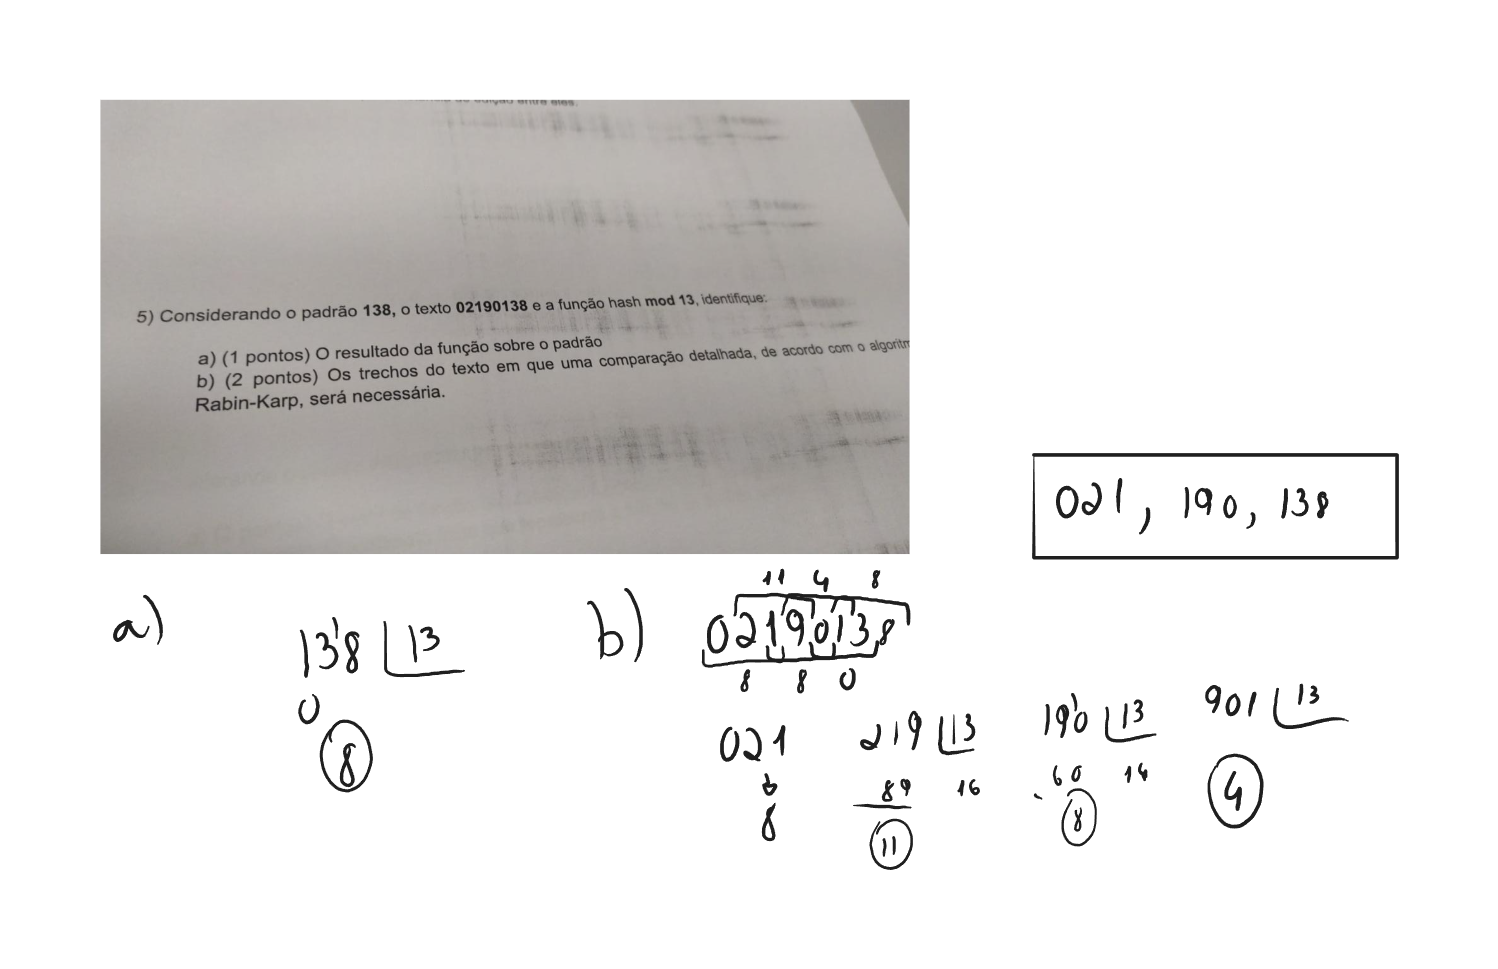 5) Considerando o padrão 138, o texto 02190138 e a função hash mod 13, identifique:
a) (1 pontos) O resultado da função sobre o padrão
b) (2 pontos) Os trechos do texto em que uma comparação detalhada, de acordo com o algoritm
Rabin-Karp, será necessária.
021, 190, 138
a)
138 13
0
8
b)
11 4 8
02190138
8 8 0
021
8
219 13
89 16
11
190 13
60 14
8
901 13
4